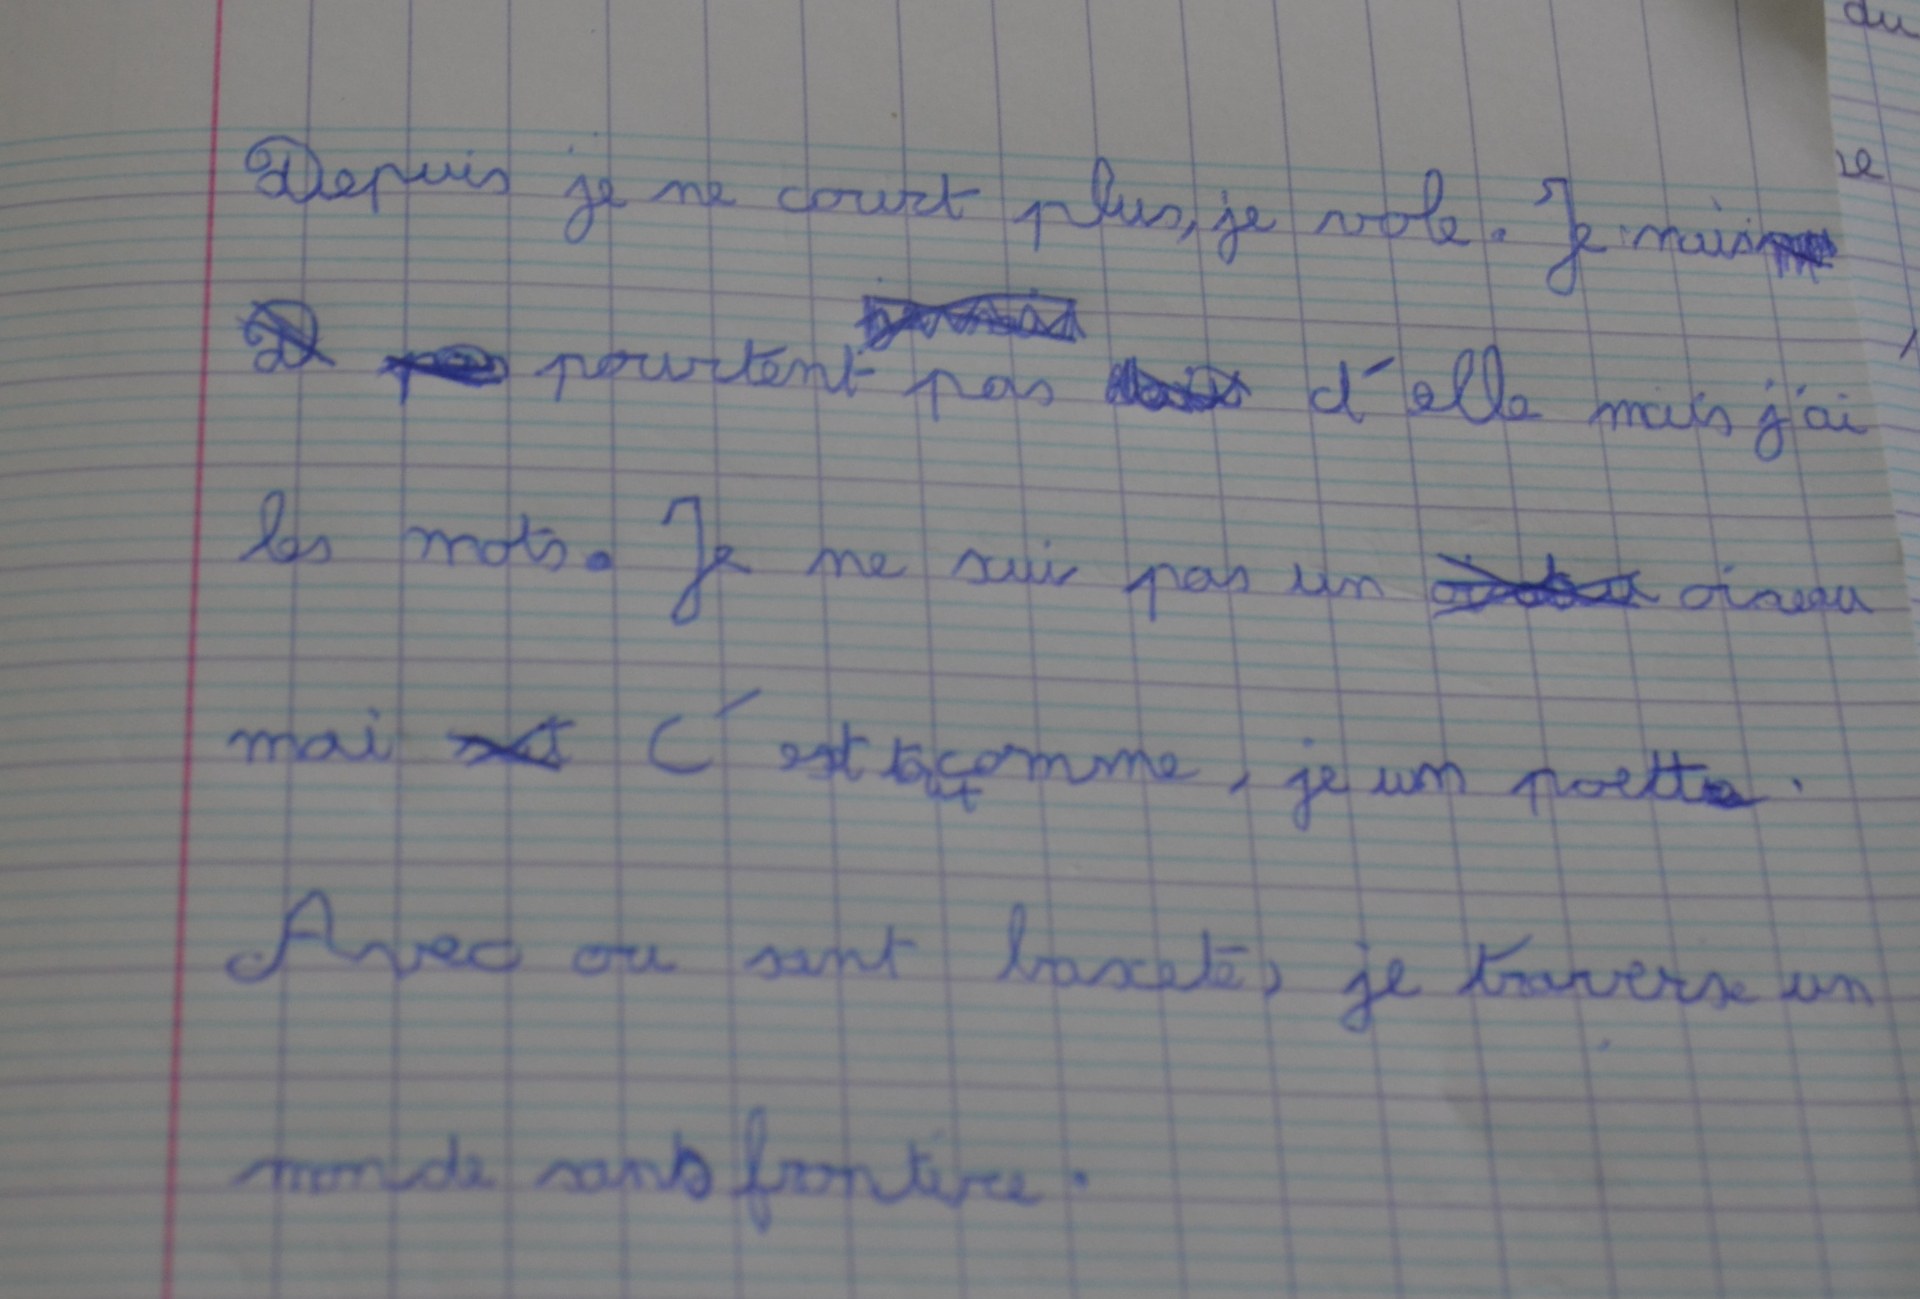 du
Depuis je ne court plus, je vole. Je nais
re
pourtent pas d'elle mais j'ai
les mots. Je ne suis pas un oiseau
mai C'est tout comme, je un poette.
Avec ou sant baxeté, je traverse un
monde sans frontière.